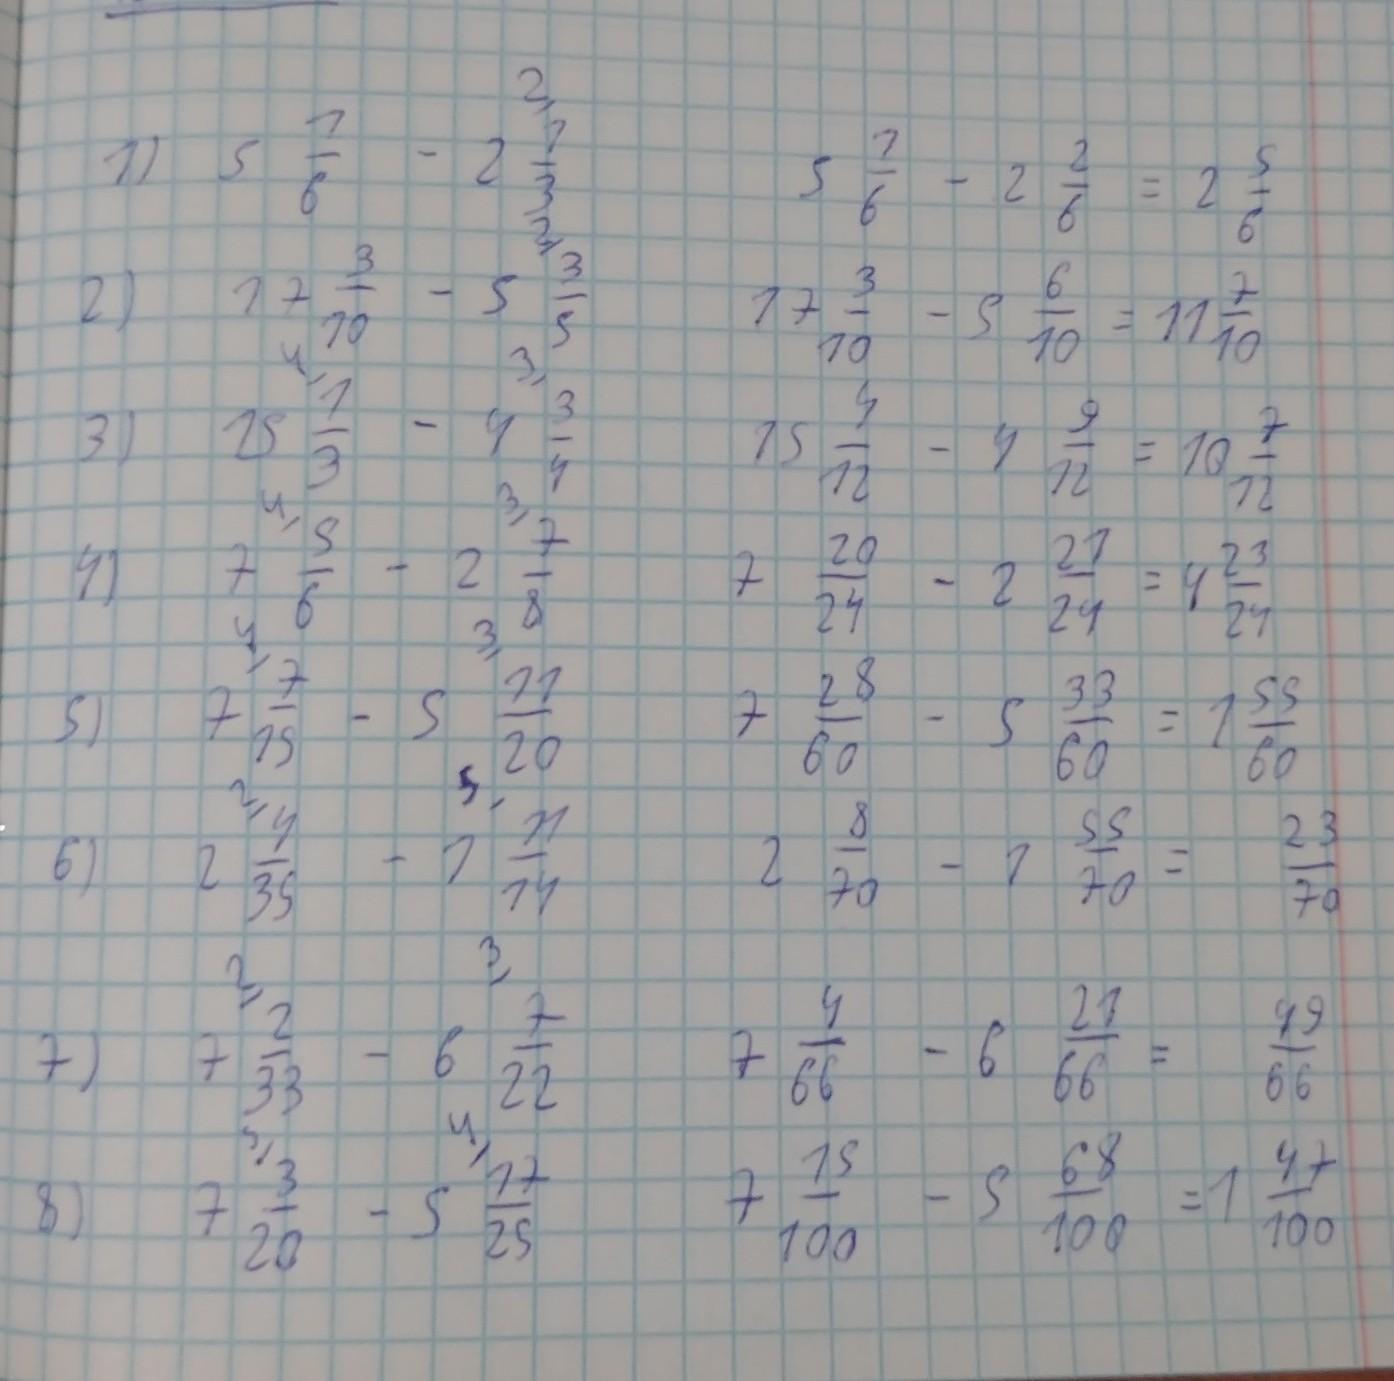 1) 5 1/6 - 2 2, 1/3 5 1/6 - 2 2/6 = 2 5/6
2) 17 3/10 - 5 2, 3/5 17 3/10 - 5 6/10 = 11 7/10
3) 15 4, 1/3 - 4 3, 3/4 15 4/12 - 4 9/12 = 10 7/12
4) 7 4, 5/6 - 2 3, 7/8 7 20/24 - 2 21/24 = 4 23/24
5) 7 4, 7/15 - 5 3, 11/20 7 28/60 - 5 33/60 = 1 55/60
6) 2 2, 4/35 - 1 5, 11/14 2 8/70 - 1 55/70 = 23/70
7) 7 2, 2/33 - 6 3, 7/22 7 4/66 - 6 21/66 = 49/66
8) 7 5, 3/20 - 5 4, 17/25 7 15/100 - 5 68/100 = 1 47/100